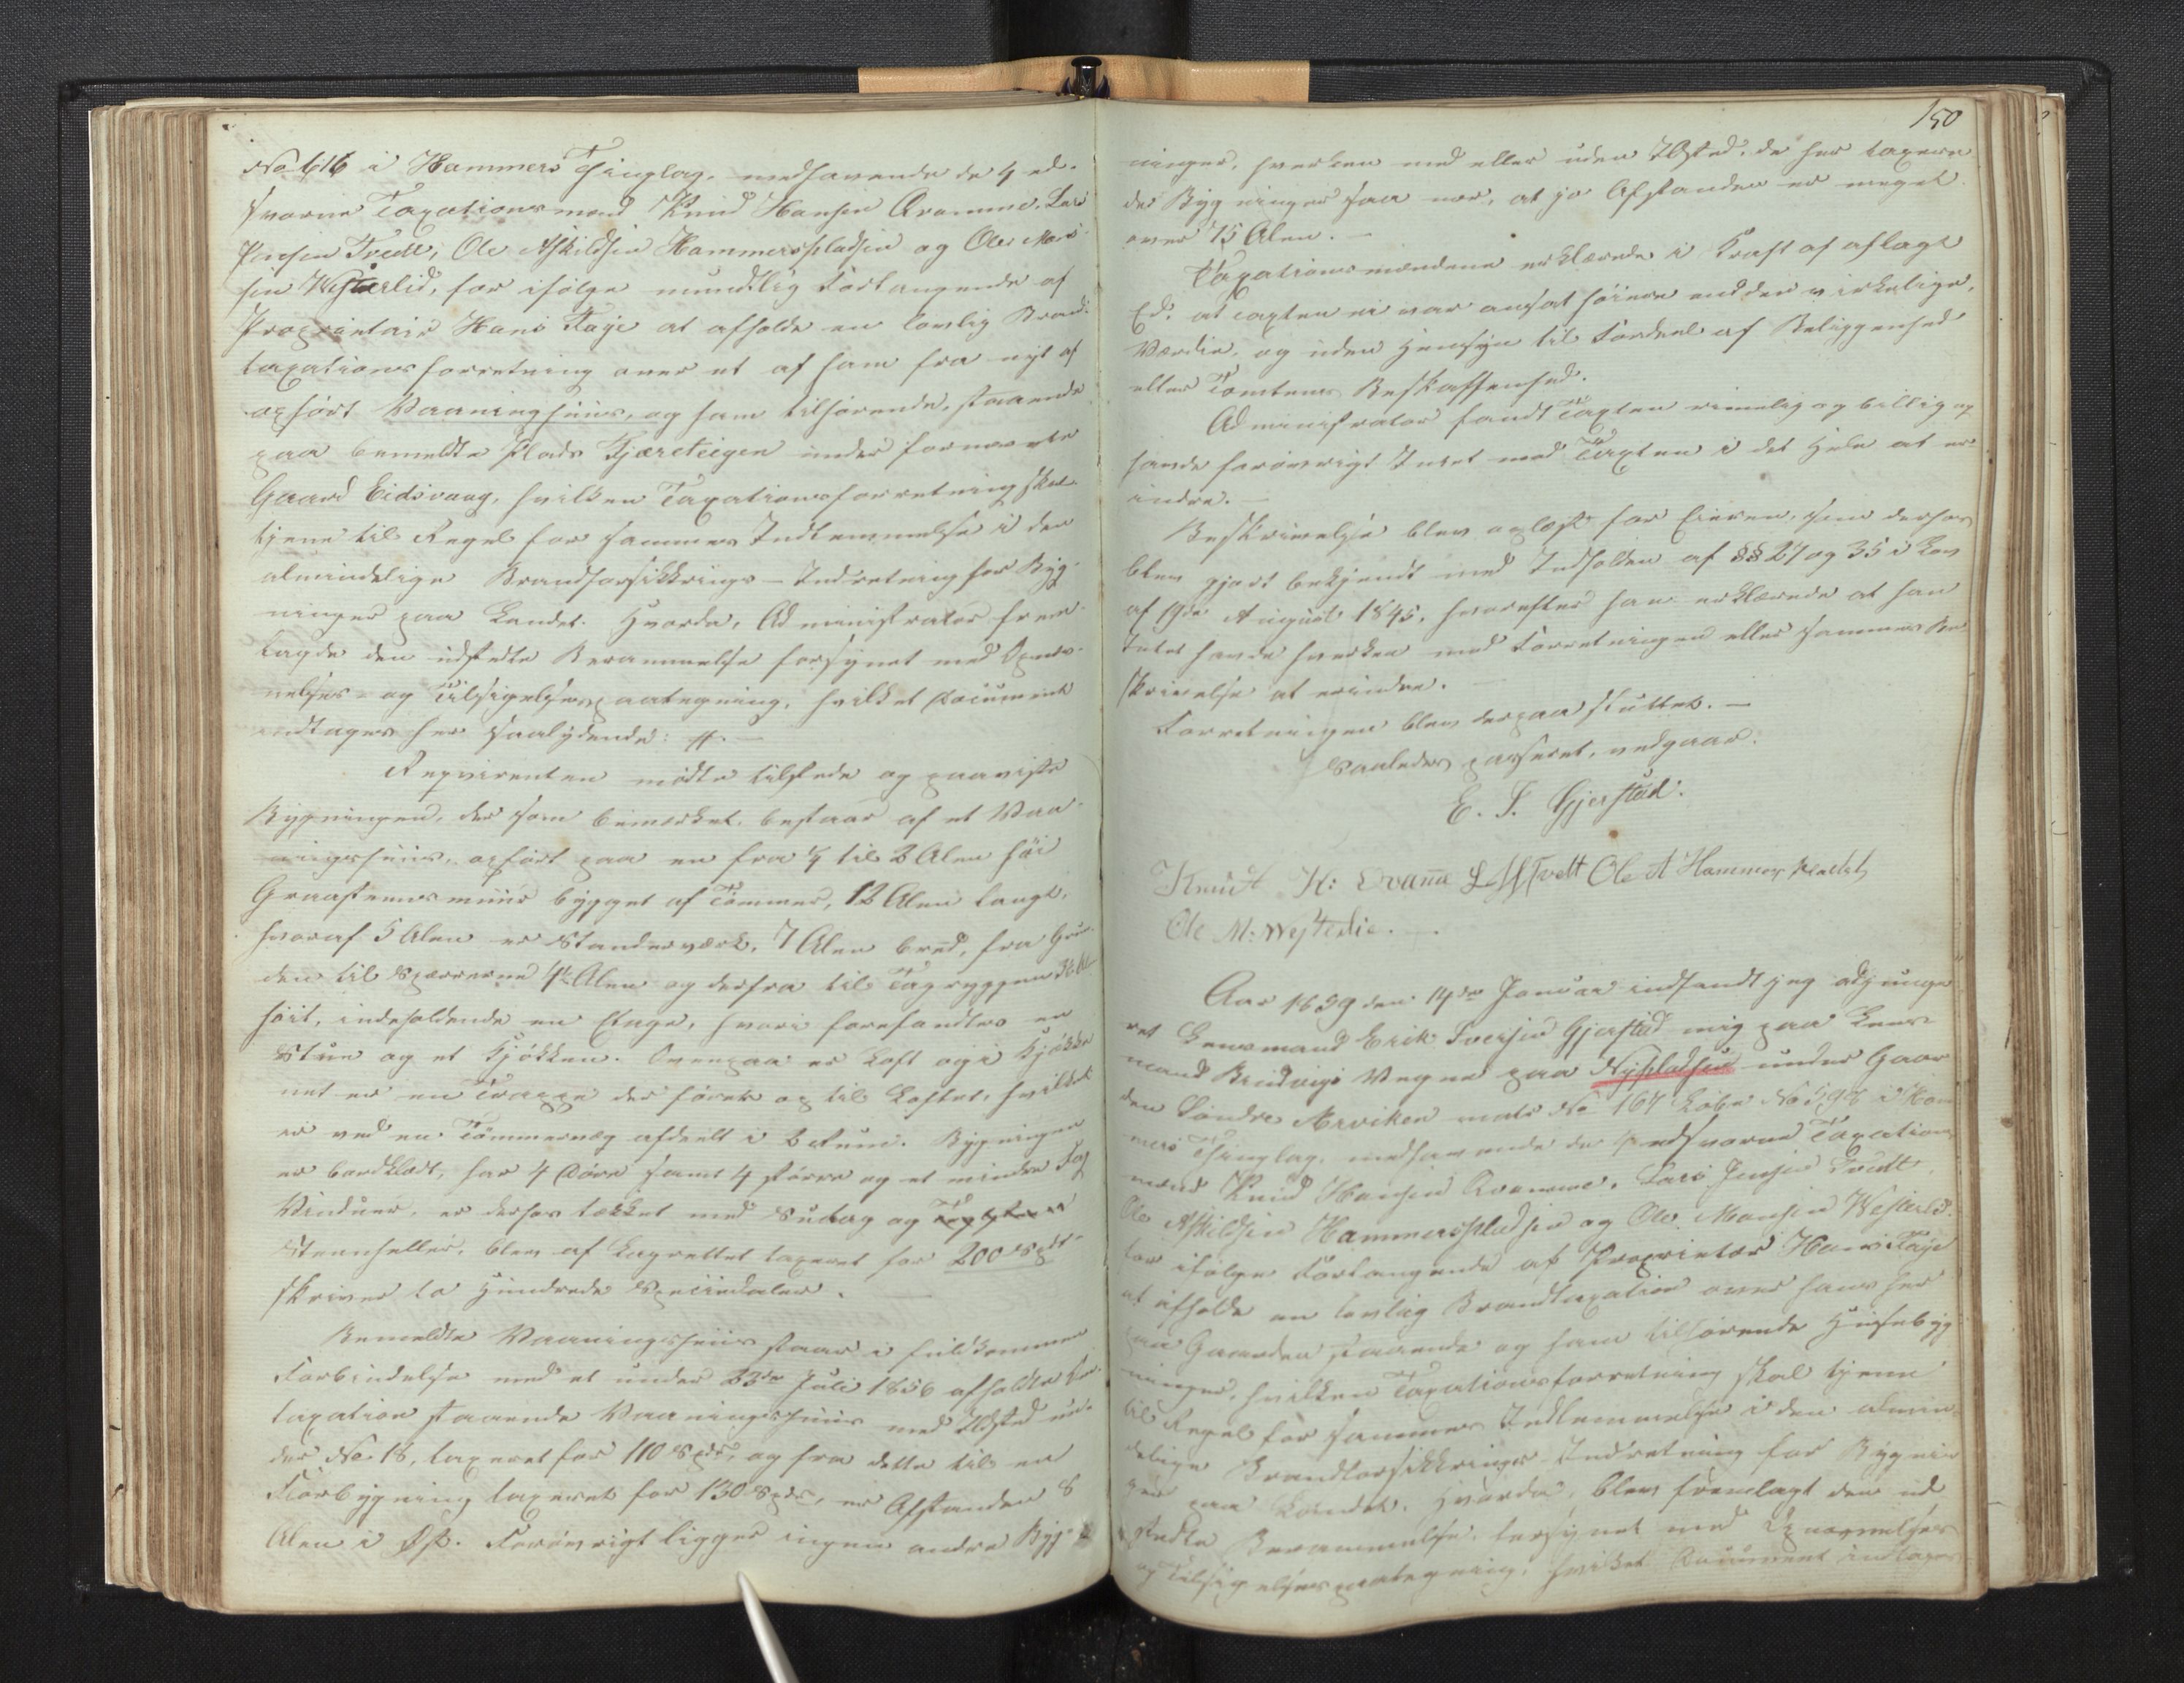 No 616 i Hammers Thinglag, medhavende de 4 ed-
svorne Taxationsmænd Knud Hansen Qvamme, Lars
Jensen Tvedt, Ole Askildsen Hammerspladsen og Ole Mons-
sen Westerlid, for ifølge mundtlig Forlangende af
Proprietair Hans Faye at afholde en lovlig Brand-
taxationsforretning over et af ham fra nyt af
opført Vaaningshuus, og ham tilhørende, staaende
paa bemeldte Plads Kjæreteigen under fornævnte
Gaard Eidsvaag, hvilken Taxationsforretning skal
tjene til Regel for sammes Indlemmelse i den
almindelige Brandforsikkrings-Indretning for Byg-
ninger paa Landet. Hvorda, Administrator frem-
lagde den udstedte Berammelse forsynet med Opnæv-
nelses- og Tilsigelsespaategning, hvilket Document
indtages her saalydende: #. —
Reqvirenten mødte tilstede og paaviste
Bygningen, der som bemærket, bestaar af et Vaa-
ningshuus, opført paa en fra ¼ til 2 Alen høi
Graasteensmuur bygget af Tømmer, 12 Alen langt,
hvoraf 5 Alen er Standerværk, 7 Alen bred, fra Grun-
den til Sperrerne 4½ Alen og derfra til Tagryggen 3½ Al.
høit, indeholdende en Etage, hvori forefandtes en
Stue og et Kjøkken. Ovenpaa er Loft og i Kjøkke-
net er en Trappe der fører op til Loftet, hvilket
er ved en Tømmervæg afdeelt i 2 Rum. Bygningen
er bordklædt, har 4 Døre samt 4 større og et mindre Fag
Vinduer, er derhos tækket med Sutag og
Steenheller, blev af Lagrettet taxeret for 200 Spdlr
skriver to Hundrede Speciedaler. —
Bemeldte Vaaningshuus staar i fuldkommen
Forbindelse med et under 23de Juli 1856 afholdte
taxation staaende Vaaningshuus med Ildsted un-
der No 18, taxeret for 110 Spdr, og fra dette til en
Florbygning taxeret for 130 Spdr, er Afstanden 8
Alen i Øst. Forøvrigt ligger ingen andre Byg-
150
ninger, hverken med eller uden Ildsted, de her taxere-
de Bygninger saa nær, at jo Afstanden er meget
over 15 Alen. —
Taxationsmændene erklærede i Kraft af aflagt
Ed, at Taxten ei var ansat høiere end den virkelige
Værdie, og uden Hensyn til Fordeel af Beliggenhed
eller Tomtens Beskaffenhed.
Administrator fandt Taxten rimelig og billig og
havde forøvrigt Intet mod Taxten i det Hele at er-
indre. —
Beskrivelse blev oplæst for Eieren, som derhos
blev gjort bekjendt med Indholden af §§ 27 og 35 i Lov
af 19de August 1845, hvorefter han erklærede at han
Intet havde hverken mod Forretningen eller sammes Be-
skrivelse at erindre. —
Forretningen blev derpaa sluttet. —
Saaledes passeret, vedgaar.
E. S. Gjerstad.
Knud H: Qvame L J Tvedt Ole A Hammerspladsen
Ole M: Westerlie.
Aar 1859 den 14de Januar indfandt jeg adjunge-
ret Lensmand Erik Sversen Gjerstad mig paa Lens-
mand Brudvigs Vegne paa Nypladsen under Gaar-
den Søndre Arviken matr No 167 Løbe No 598 i Ham-
mers Thinglag, medhavende de 4 edsvorne Taxations-
mænd Knud Hansen Qvamme, Lars Jensen Tvedt,
Ole Askildsen Hammerspladsen og Ole Monsen Westerlid
for ifølge Forlangende af Proprietær Hans Faye
at afholde en lovlig Brandtaxation over hans her
paa Gaarden staaende og ham tilhørende Huusebyg-
ninger, hvilken Taxationsforretning skal tjene
til Regel for sammes Indlemmelse i den almin-
delige Brandforsikkrings-Indretning for Bygnin-
ger paa Landet. Hvorda, blev fremlagt den ud-
stedte Berammelse, forsynet med Opnævnelses-
og Tilsigelsespaategning, hvilket Document indtages